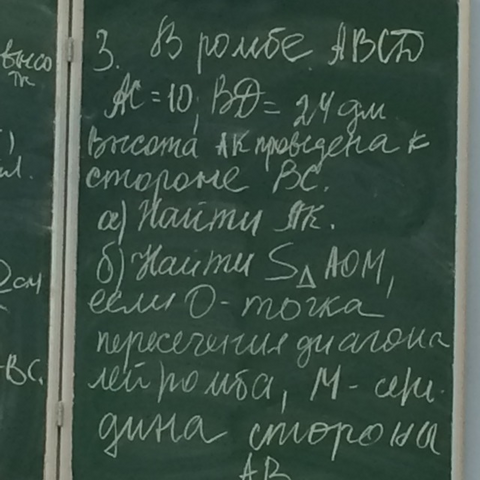 высо
3. В ромбе ABCD
AC = 10, BD = 24 дм
Высота AK проведена к
стороне BC.
а) Найти AK.
б) Найти S△ AOM,
2 см
если O - точка
пересечения диагона
-BC.
лей ромба, M - сере
дина стороны
AB